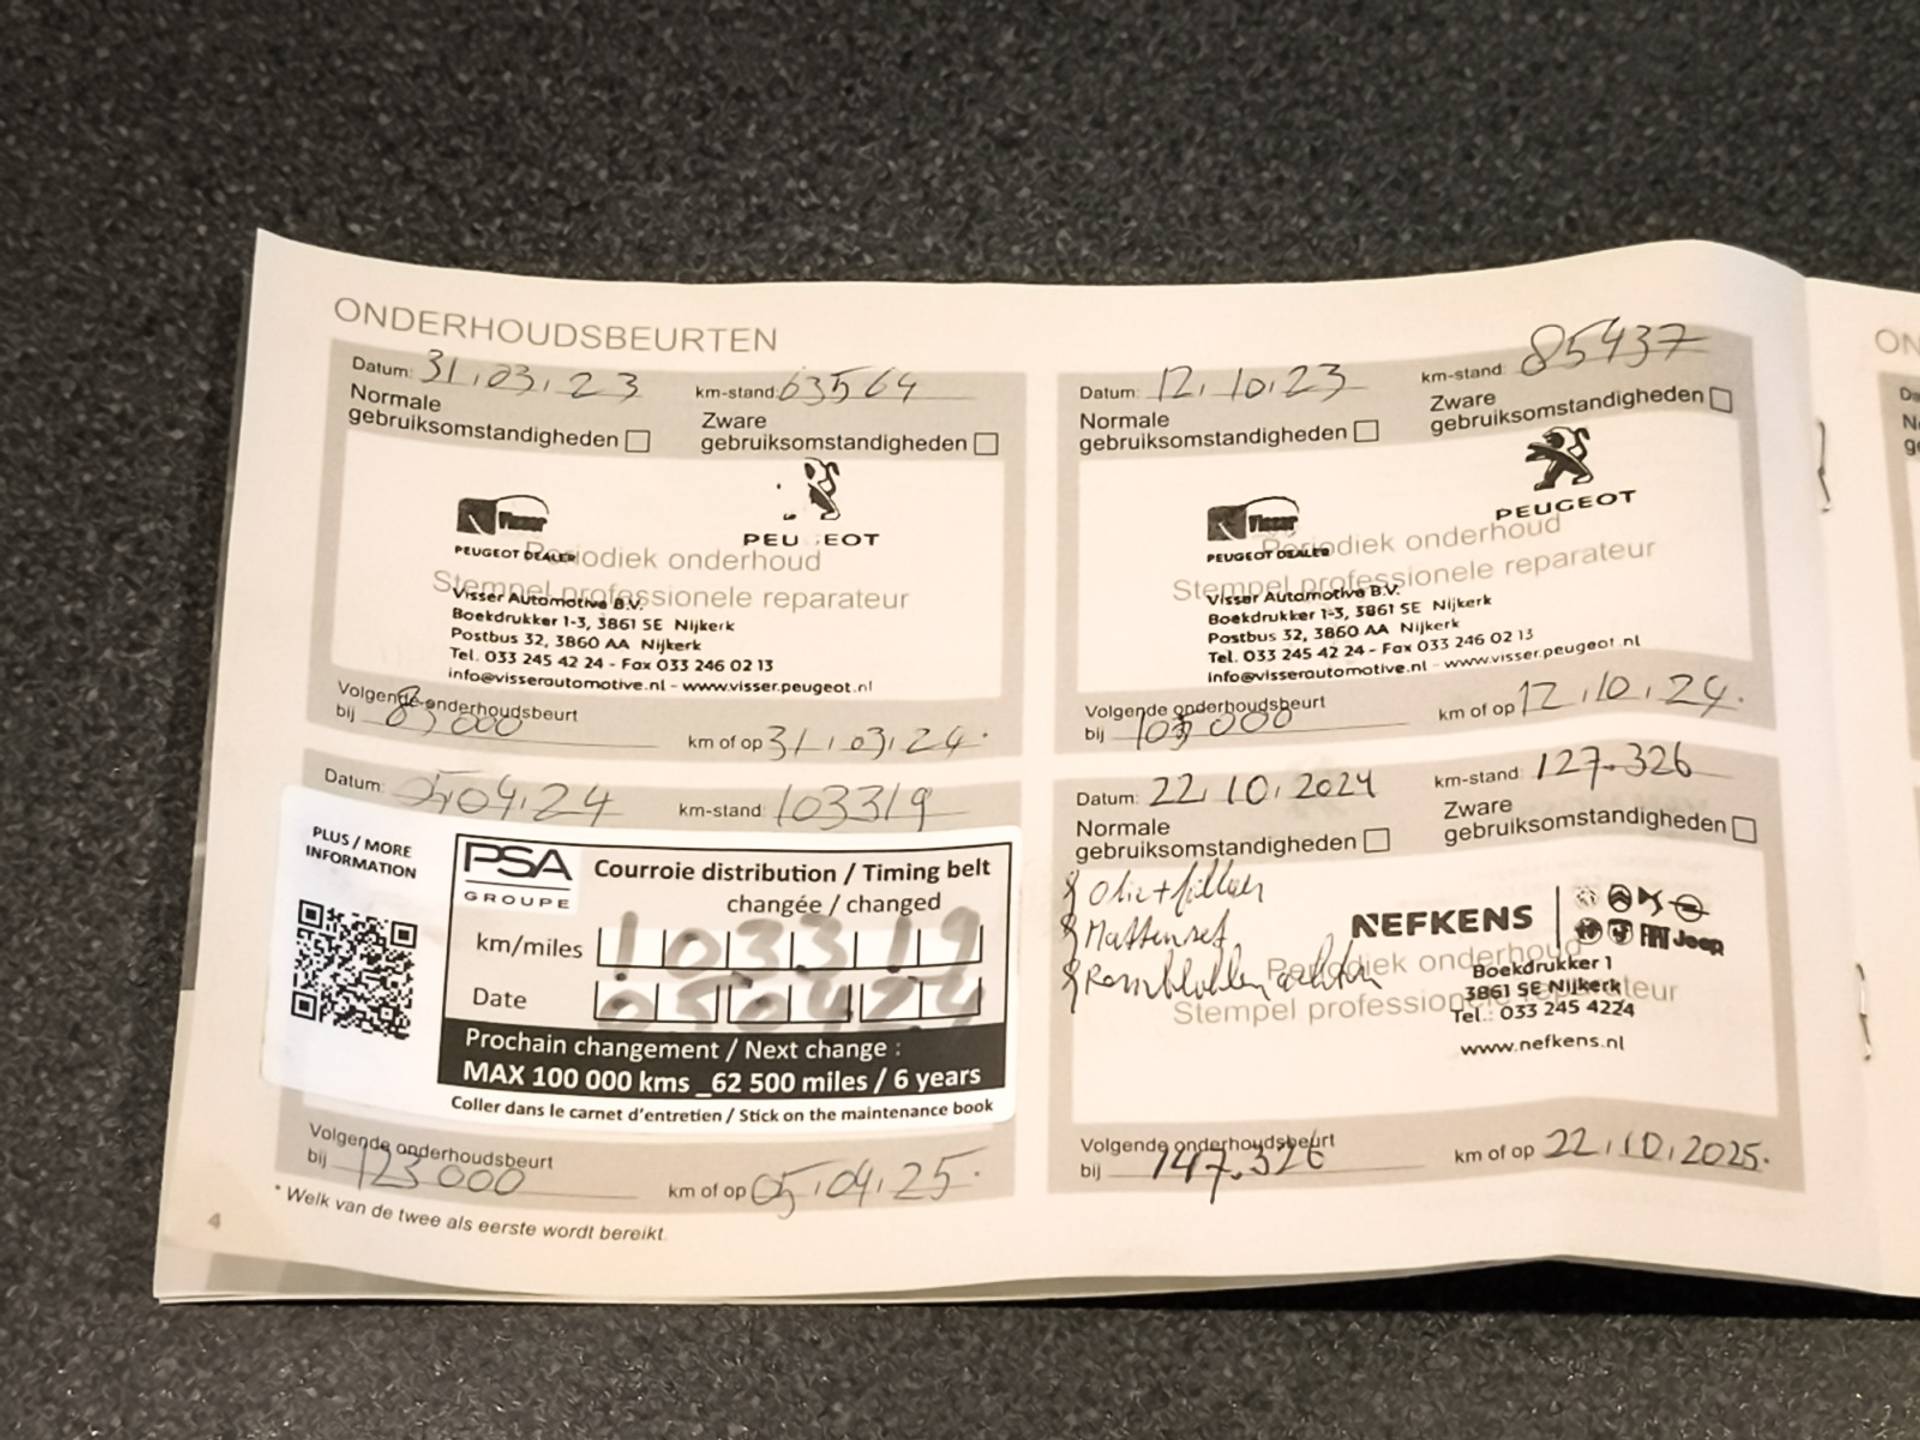 ONDERHOUDSBEURTEN
Datum: 31.03.23 km-stand: 63564
Normale
gebruiksomstandigheden
Zware
gebruiksomstandigheden
Visser
PEUGEOT DEALER
PEU EOT
Periodiek onderhoud
Stempel professionele reparateur
Visser Automotive B.V.
Boekdrukker 1-3, 3861 SE Nijkerk
Postbus 32, 3860 AA Nijkerk
Tel. 033 245 42 24 - Fax 033 246 02 13
info@visserautomotive.nl - www.visser.peugeot.nl
Volgende onderhoudsbeurt
bij 83000 km of op 31.03.24.
Datum: 12.10.23 km-stand: 85437
Normale
gebruiksomstandigheden
Zware
gebruiksomstandigheden
Visser
PEUGEOT DEALER
PEUGEOT
Periodiek onderhoud
Stempel professionele reparateur
Visser Automotive B.V.
Boekdrukker 1-3, 3861 SE Nijkerk
Postbus 32, 3860 AA Nijkerk
Tel. 033 245 42 24 - Fax 033 246 02 13
info@visserautomotive.nl - www.visser.peugeot.nl
Volgende onderhoudsbeurt
bij 105000 km of op 12.10.24.
Datum: 05.04.24 km-stand: 103319
PLUS / MORE
INFORMATION
PSA
GROUPE
Courroie distribution / Timing belt
changée / changed
km/miles 103319
Date 050424
Prochain changement / Next change :
MAX 100 000 kms _62 500 miles / 6 years
Coller dans le carnet d'entretien / Stick on the maintenance book
Volgende onderhoudsbeurt
bij 123000 km of op 05.04.25.
Datum: 22.10.2024 km-stand: 127.326
Normale
gebruiksomstandigheden
Zware
gebruiksomstandigheden
Olie+filter
Mattenset
Remblokken achter
NEFKENS
FIAT Jeep
Periodiek onderhoud
Stempel professionele reparateur
Boekdrukker 1
3861 SE Nijkerk
Tel.: 033 245 4224
www.nefkens.nl
Volgende onderhoudsbeurt
bij 147.326 km of op 22.10.2025.
* Welk van de twee als eerste wordt bereikt.
4
ON